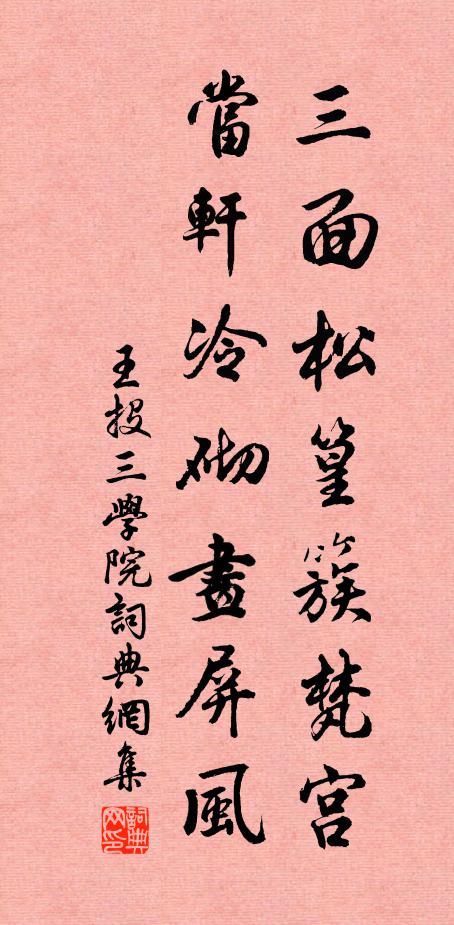 三面松篁簇梵宫
當軒冷砌畫屏風
王投三學院詞典網集
詞典網印